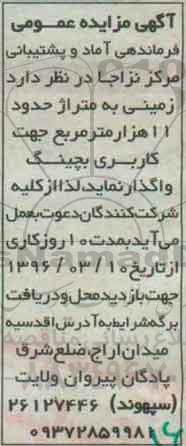 آگهی مزایده عمومی
فرماندهی آماد و پشتیبانی
مرکز نزاجا در نظر دارد
زمینی به متراژ حدود
۱۱هزارمترمربع جهت
کاربری بچینگ
واگذارنماید،لذاازکلیه
شرکت‌کنندگان‌دعوت‌بعمل
می‌آیدبمدت۱۰روزکاری
ازتاریخ۱۳۹۶/۰۳/۱۰
جهت‌بازدیدمحل‌ودریافت
برگه‌شرایط‌به‌آدرس‌اقدسیه
میدان‌اراج،ضلع‌شرق
پادگان پیروان ولایت
(سپهوند) ۲۶۱۲۷۴۴۶
۰۹۳۷۲۸۵۹۹۸۱